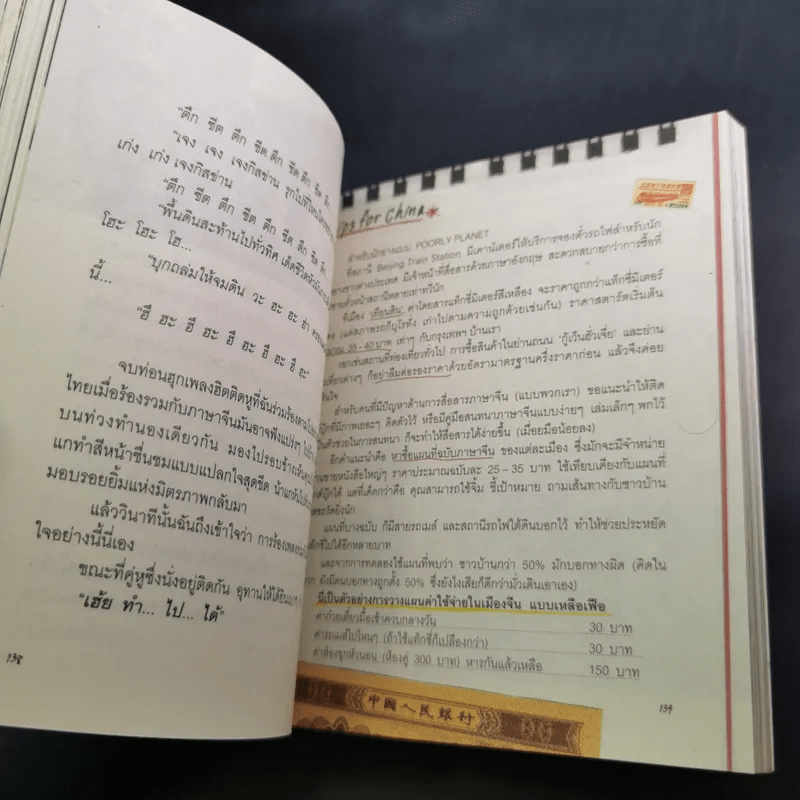 "ดึก ชีด ดึก ชีด ดึก ชีด ดึก ชีด ดึก
"เจง เจง เจงกิสข่าน รุกไปที่ไหน
เก่ง เก่ง เจงกิสข่าน
"ดึก ชีด ดึก ชีด ดึก ชีด ดึก ชีด ดึก
"พื้นดินสะท้านไปทั่วทิศ เด็ดชีวิต
โฮะ โฮะ โฮ...
"บุกถล่มให้จมดิน วะ ฮะ ฮะ ฮ่า
นี้...
"ฮึ ฮะ ฮึ ฮะ ฮึ ฮะ ฮึ ฮะ ฮึ ฮะ"
จบท่อนฮุกเพลงฮิตติดหูที่ฉันร่วมร้อง
ไทยเมื่อร้องรวมกับภาษาจีนมันอาจฟังแปร่งๆ
บนท่วงทำนองเดียวกัน มองไปรอบข้าง
แกทำสีหน้าชื่นชมแบบแปลกใจสุดขีด
มอบรอยยิ้มแห่งมิตรภาพกลับมา
แล้ววินาทีนั้นฉันถึงเข้าใจว่า การร้องเพลง
ใจอย่างนี้นี่เอง
ขณะที่คู่หูซึ่งนั่งอยู่ติดกัน อุทานให้ได้ยินเบาๆ
"เฮ้ย ทำ... ไป... ได้"
138
for China
สำหรับนักย่างแบบ POORLY PLANET
ที่สถานี Beijing Train Station มีเคาน์เตอร์ให้บริการจองตั๋วรถไฟสำหรับนัก
ทางชาวต่างประเทศ มีเจ้าหน้าที่สื่อสารด้วยภาษาอังกฤษ สะดวกสบายกว่าการซื้อที่
ขายตั๋วหน้าสถานีหลายเท่าทวีนัก
ที่เมือง เทียนสิน ค่าโดยสารแท็กซี่มิเตอร์สีเหลือง จะราคาถูกกว่าแท็กซี่มิเตอร์
(แต่สภาพรถก็บุโรทั่ง เก่าไปตามความถูกด้วยเช่นกัน) ราคาสตาร์ตเริ่มต้น
35 - 40 บาท เท่าๆ กับกรุงเทพฯ บ้านเรา
เฉกเช่นสถานที่ท่องเที่ยวทั่วไป การซื้อสินค้าในย่านถนน "กู้เวิ่นฮั่วเจี่ย" และย่าน
เที่ยวต่างๆ ก็อย่าลืมต่อรองราคาด้วยอัตรามาตรฐานครึ่งราคาก่อน แล้วจึงค่อย
สำหรับคนที่มีปัญหาด้านการสื่อสารภาษาจีน (แบบพวกเรา) ขอแนะนำให้ติด
ที่มีภาพเยอะๆ ติดตัวไว้ หรือมีคู่มือสนทนาภาษาจีนแบบง่ายๆ เล่มเล็กๆ พกไว้
เป็นตัวช่วยในการสนทนา ก็จะทำให้สื่อสารได้ง่ายขึ้น (เมื่อยมือน้อยลง)
อีกคำแนะนำคือ หาซื้อแผนที่ฉบับภาษาจีน ของแต่ละเมือง ซึ่งมักจะมีจำหน่าย
ขายหนังสือใหญ่ๆ ราคาประมาณฉบับละ 25 - 35 บาท ใช้เทียบเคียงกับแผนที่
แต่ที่เด็ดกว่าคือ คุณสามารถใช้จิ้ม ชี้เป้าหมาย ถามเส้นทางกับชาวบ้าน
แผนที่บางฉบับ ก็มีสายรถเมล์ และสถานีรถไฟใต้ดินบอกไว้ ทำให้ช่วยประหยัด
ได้อีกหลายบาท
และจากการทดลองใช้แผนที่พบว่า ชาวบ้านกว่า 50% มักบอกทางผิด (คิดใน
ยังมีคนบอกทางถูกตั้ง 50% ซึ่งยังไงเสียก็ดีกว่ามั่วเดินเอาเอง)
นี่เป็นตัวอย่างการวางแผนค่าใช้จ่ายในเมืองจีน แบบเหลือเฟือ
ค่าก๋วยเตี๋ยวมื้อเช้าควบกลางวัน 30 บาท
ค่ารถเมล์ไปไหนๆ (ถ้าใช้แท็กซี่ก็เปลืองกว่า) 30 บาท
ค่าห้องซุกหัวนอน (ห้องคู่ 300 บาท) หารกันแล้วเหลือ 150 บาท
中國人民銀行
139